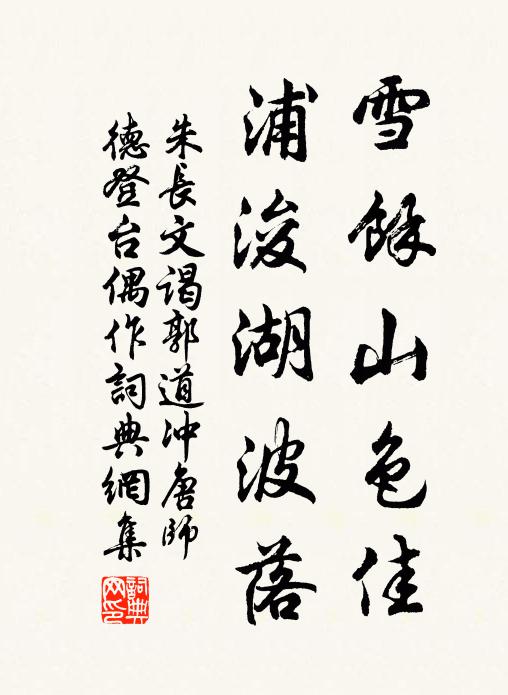 雪餘山色佳
浦浚湖波落
朱長文謁郭道沖唐師
德登台偶作詞典網集
詞典网印